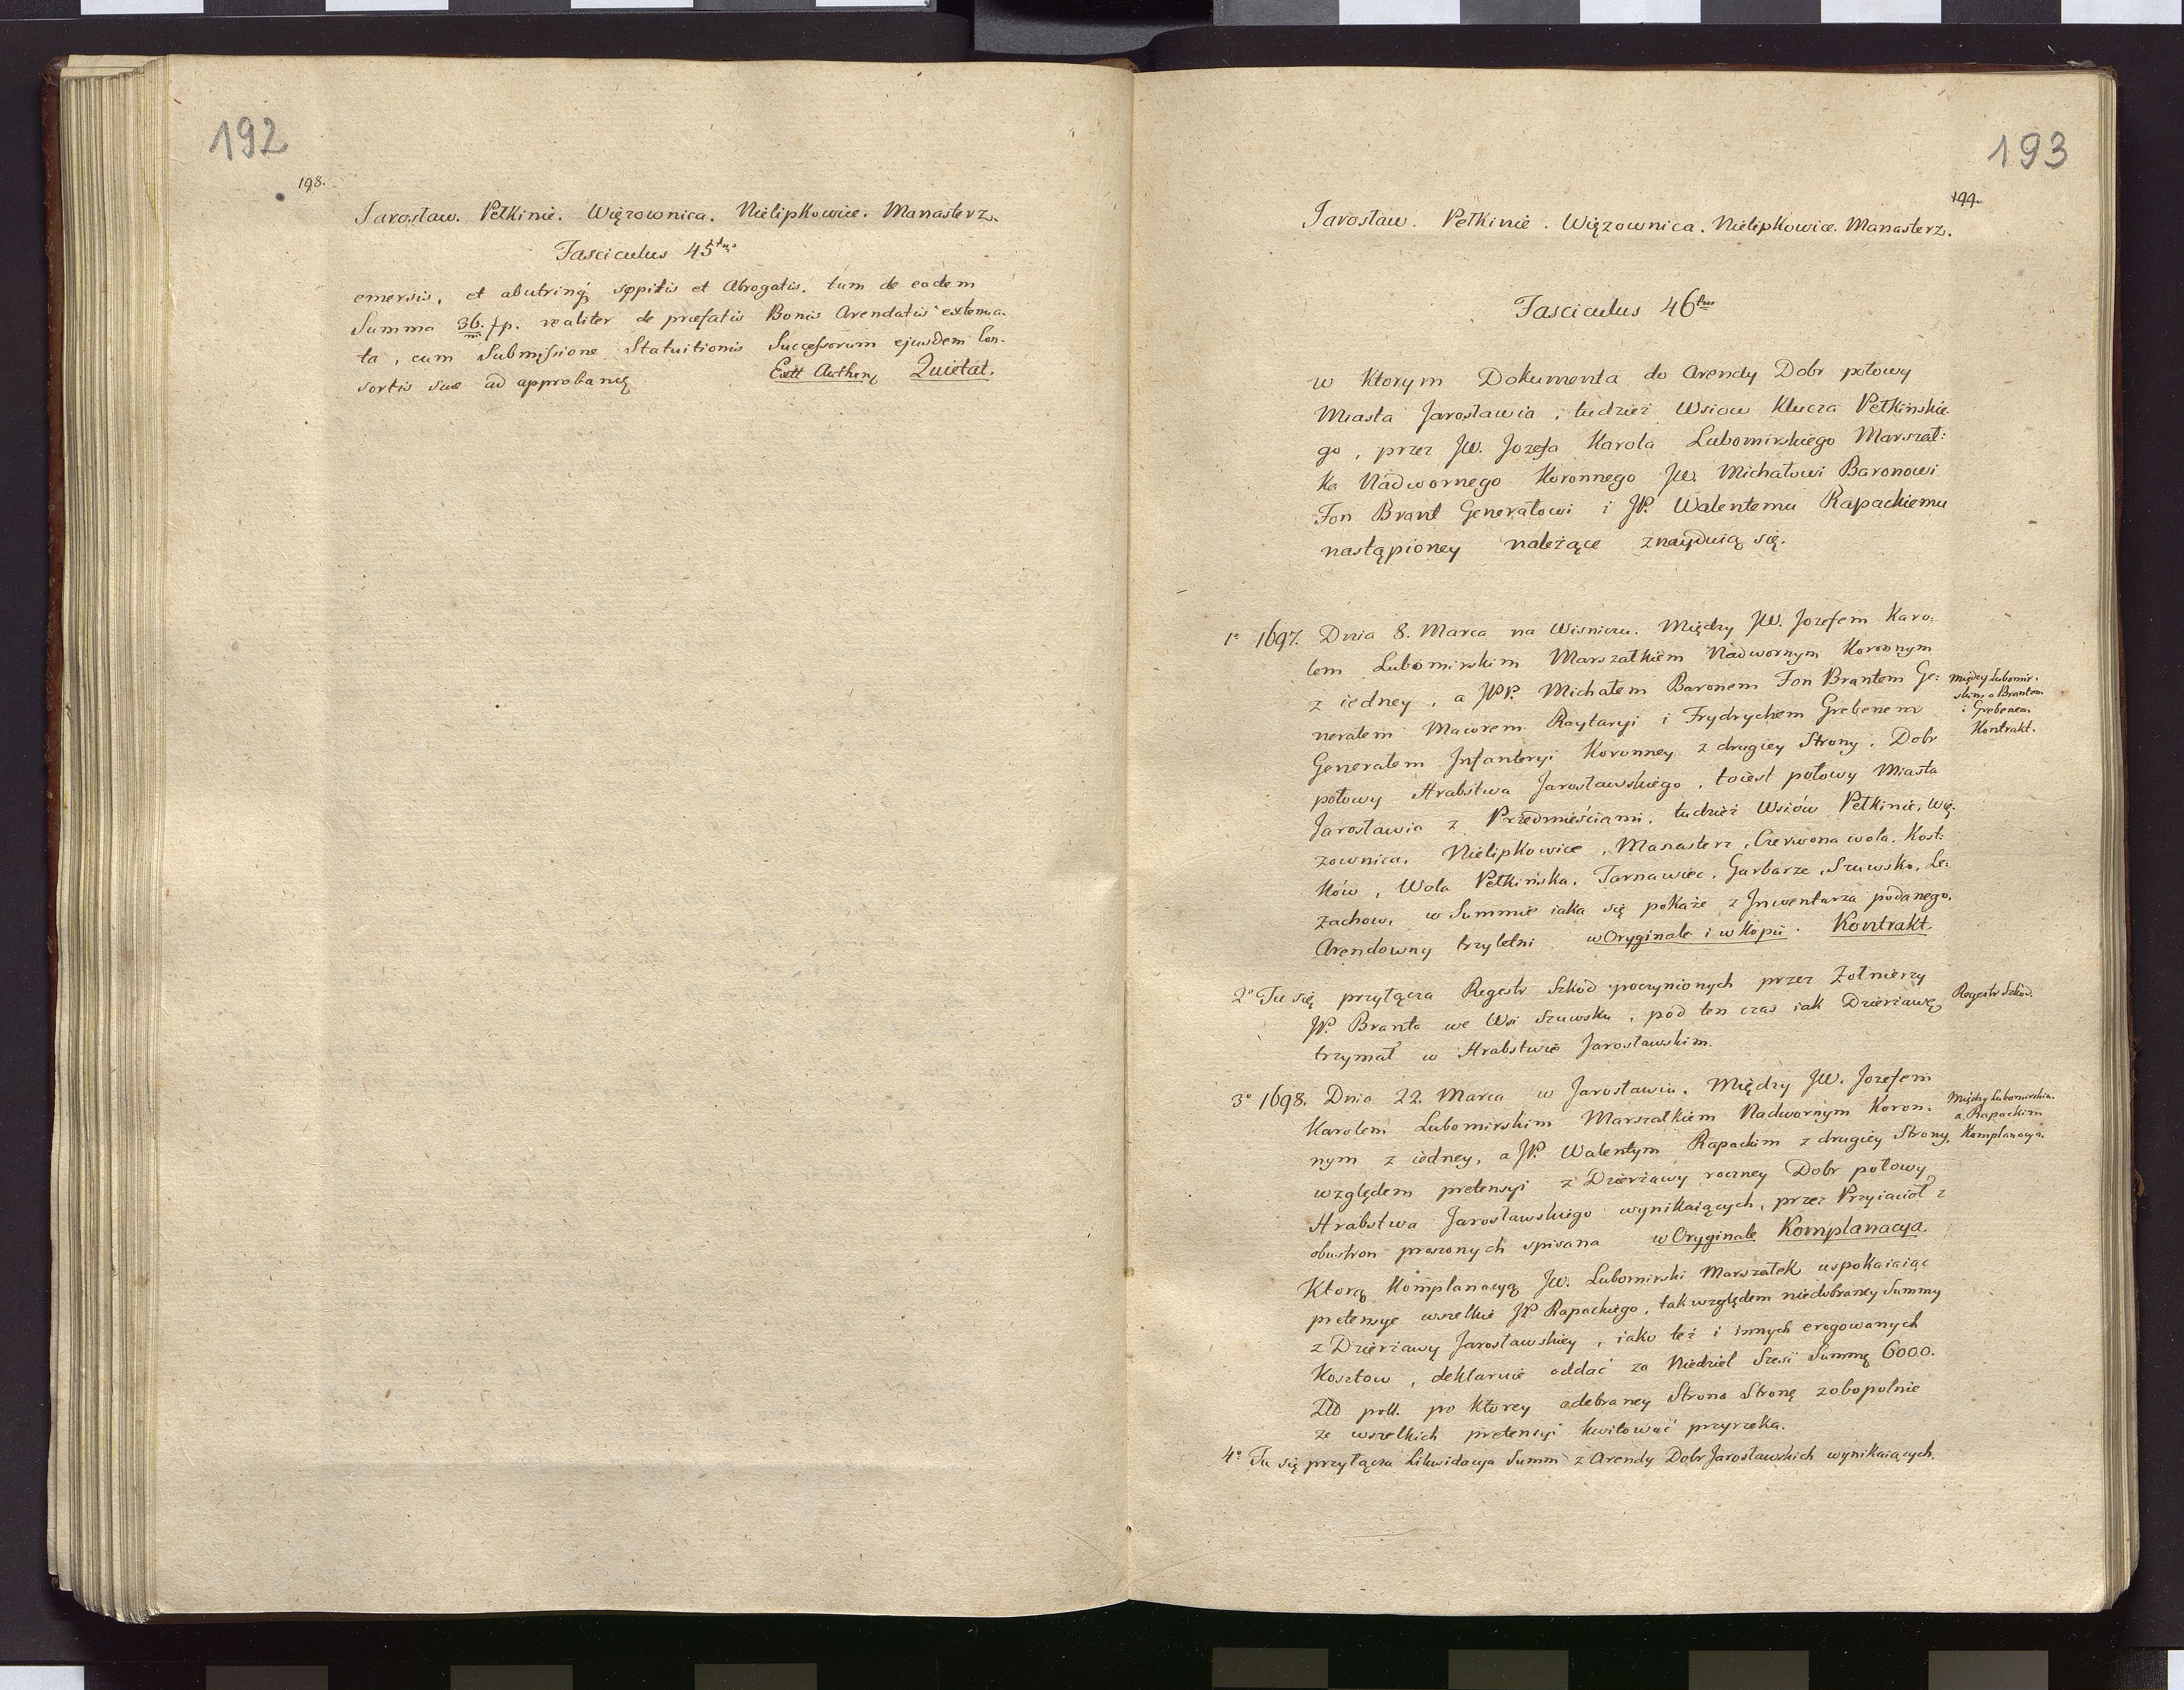 192
198.
Jarosław. Pełkinie. Więzownica. Nielipkowice. Manasterz.
Fasciculus 45tus
emersis, et abutrinq́ sopitis et abrogatis. tum de eadem
Summa 36./m fp. realiter de præfatis Bonis Arendatis extenua-
ta, cum Submissione Statuitionis Successorum ejusdem Con-
sortis suæ ad approbanḍ Extt Authen, Quietat.
193
199.
Jarosław. Pełkinie. Więzownica. Nielipkowice. Manasterz.
Fasciculus 46tus
w ktorym Dokumenta do Arendy Dobr połowy
Miasta Jarosławia, tudzież Wsiow Klucza Pełkinskie-
go, przez JW. Jozefa Karola Lubomirskiego Marszał:
ka Nadwornego Koronnego JW. Michałowi Baronowi
Fon Brant Generałowi i JP. Walentemu Rapackiemu
nastąpioney należące znayduią się.
1o 1697. Dnia 8. Marca na Wisniczu. Między JW. Jozefem Karo:
lem Lubomirskim Marszałkiem Nadwornym Koronnym
z iedney, a JPP. Michałem Baronem Fon Brantem Ge:
nerałem Maiorem Raytaryi i Frydrychem Grebenem
Generałem Jnfanteryi Koronney z drugiey Strony. Dobr
połowy Hrabstwa Jarosławskiego, toiest połowy Miasta
Jarosławia z Przedmieściami, tudzież Wsiów Pełkinie, Wię:
zownica, Nielipkowice, Manasterz, Czerwona wola, Kost:
ków, Wola Pełkińska, Tarnawiec, Garbarze, Szuwsko, Le:
zachow, w Summie iaka się pokaże z Jnwentarza podanego,
Arendowny trzyletni w Oryginale i w Kopii. Kontrakt.
Między Lubomir:
skim a Brantem
i Grebenem
Kontrakt.
2o Tu się przyłącza Regestr Szkod poczynionych przez Zołnierzy
JP. Branta we Wsi Szuwsku, pod ten czas iak Dzierżawę
trzymał w Hrabstwie Jarosławskim.
Regestr Szkod.
3o 1698. Dnia 22. Marca w Jarosławiu. Między JW. Jozefem
Karolem Lubomirskim Marszałkiem Nadwornym Koron:
nym z iedney, a JP. Walentym Rapackim z drugiey Strony,
względem pretensyi z Dzierżawy roczney Dobr połowy
Hrabstwa Jarosławskiego wynikaiących, przez Przyiacioł z
obustron proszonych spisana w Oryginale Komplanacya.
Między Lubomirskim
a Rapackim
Komplanacya.
Ktorą Komplanacyą JW. Lubomirski Marszałek uspokaiaiąc
pretensye wszelkie JP Rapackiego, tak względem niedobraney Summy
z Dzierżawy Jarosławskiey, iako też i innych erogowanych
Kosztow, deklaruie oddać za Niedziel Szesć Summę 6000.
Zło poll. po ktorey odebraney Strona Stronę zobopolnie
ze wszelkich pretensyi kwitować przyrzeka.
4o Tu się przyłącza Likwidacya Summ z Arendy Dobr Jarosławskich wynikaiących.